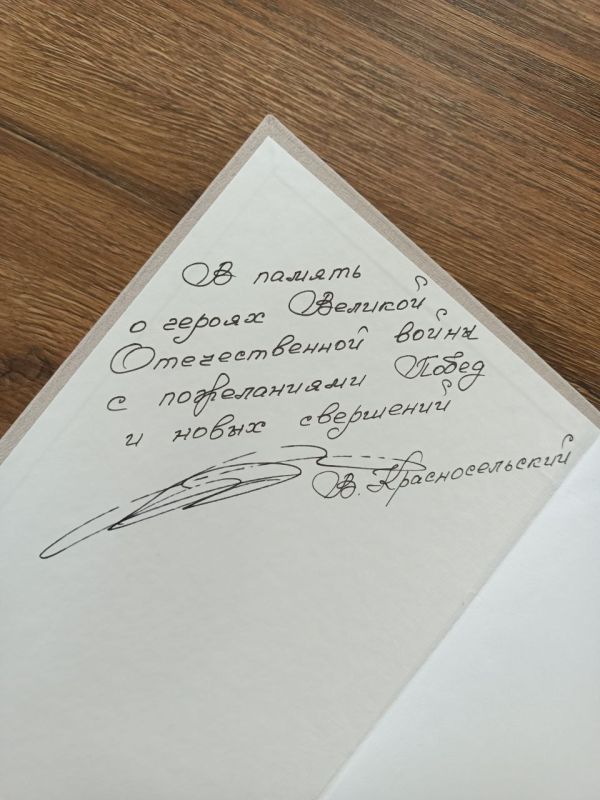 В память
о героях Великой
Отечественной войны
с пожеланиями Побед
и новых свершений
В. Красносельский